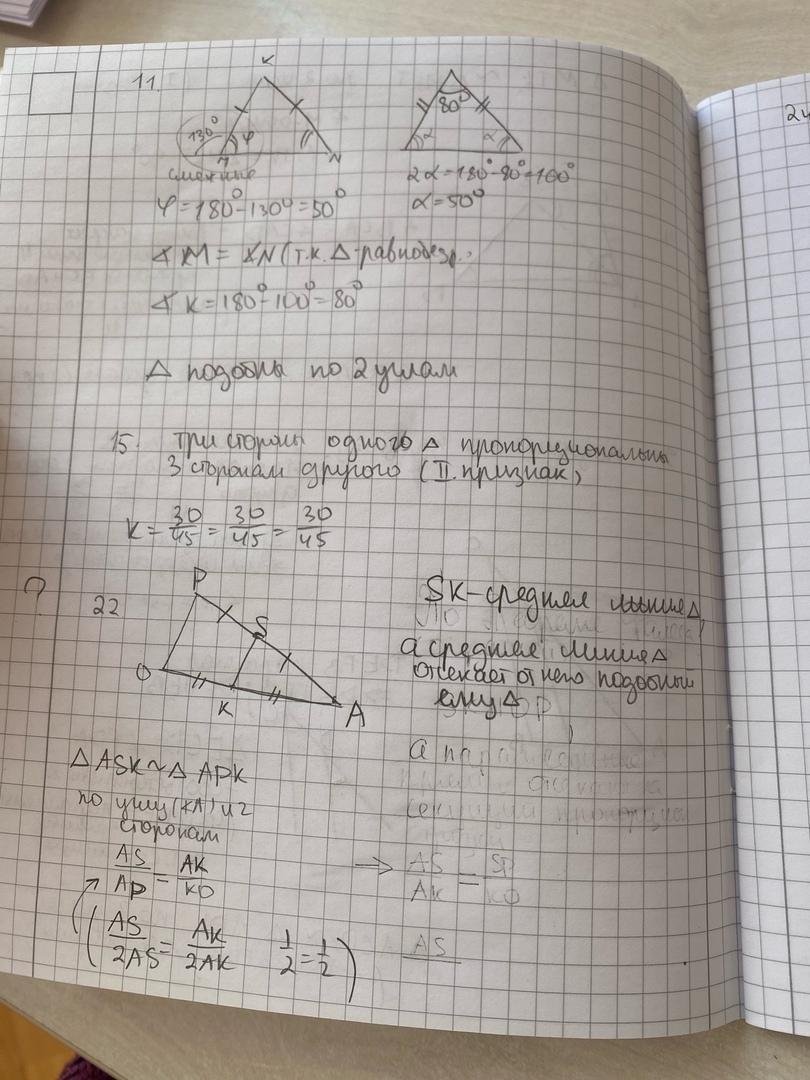 11.
K
130°
φ
N
смежные
φ=180°-130°=50°
80°
α
α
2α=180°-80°=100°
α=50°
∢M = ∢N (т.к. Δ-равнобедр.
∢K=180°-100°=80°
Δ подобны по 2 углам
15. три стороны одного Δ пропорциональны
3 сторонам другого (II. признак)
K = 30/45 = 30/45 = 30/45
?
22
P
S
O
K
A
SK-средняя линия Δ,
а средняя линия Δ
отсекает от него подобный
ему Δ
ΔASK~ΔAPK
по углу (∢A) и 2
сторонам
AS/AP = AK/KO
(AS/2AS = AK/2AK 1/2 = 1/2)
→ AS/AK = SP/KO
AS
24